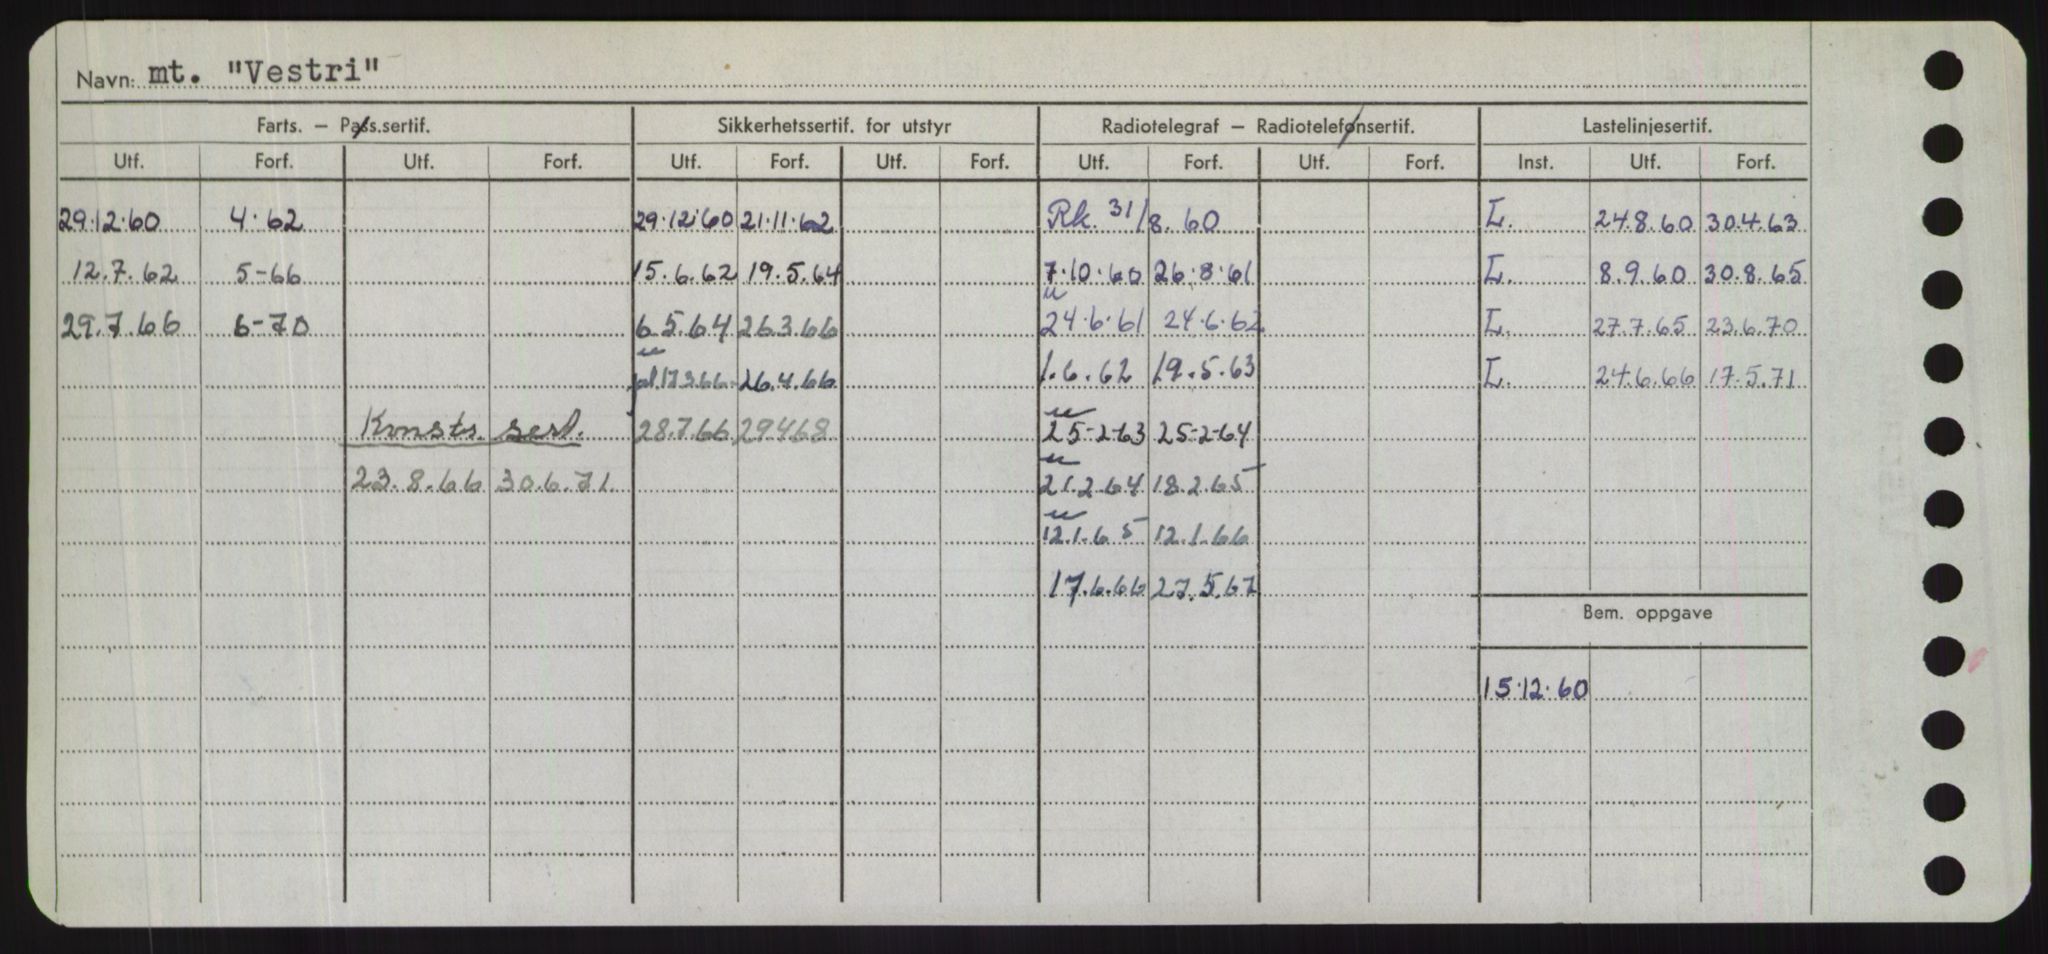 Navn: mt. "Vestri"
Farts. – Pass.sertif. Sikkerhetssertif. for utstyr Radiotelegraf – Radiotelefonsertif. Lastelinjesertif.
Utf. Forf. Utf. Forf. Utf. Forf. Utf. Forf. Utf. Forf. Utf. Forf. Inst. Utf. Forf.
29.12.60 4.62 29.12.60 21.11.62 Rk. 31/8.60 L. 24.8.60 30.4.63
12.7.62 5-66 15.6.62 19.5.64 7.10.60 26.8.61 L. 8.9.60 30.8.65
29.7.66 6-70 6.5.64 26.3.66 24.6.61 24.6.62 L. 27.7.65 23.6.70
17.3.66 26.4.66 1.6.62 19.5.63 L. 24.6.66 17.5.71
Konstr. sert. 28.7.66 29468 25-2-63 25-2-64
23.8.66 30.6.71 21.2.64 18.2.65
12.1.65 12.1.66
17.6.66 27.5.67
Bem. oppgave
15.12.60